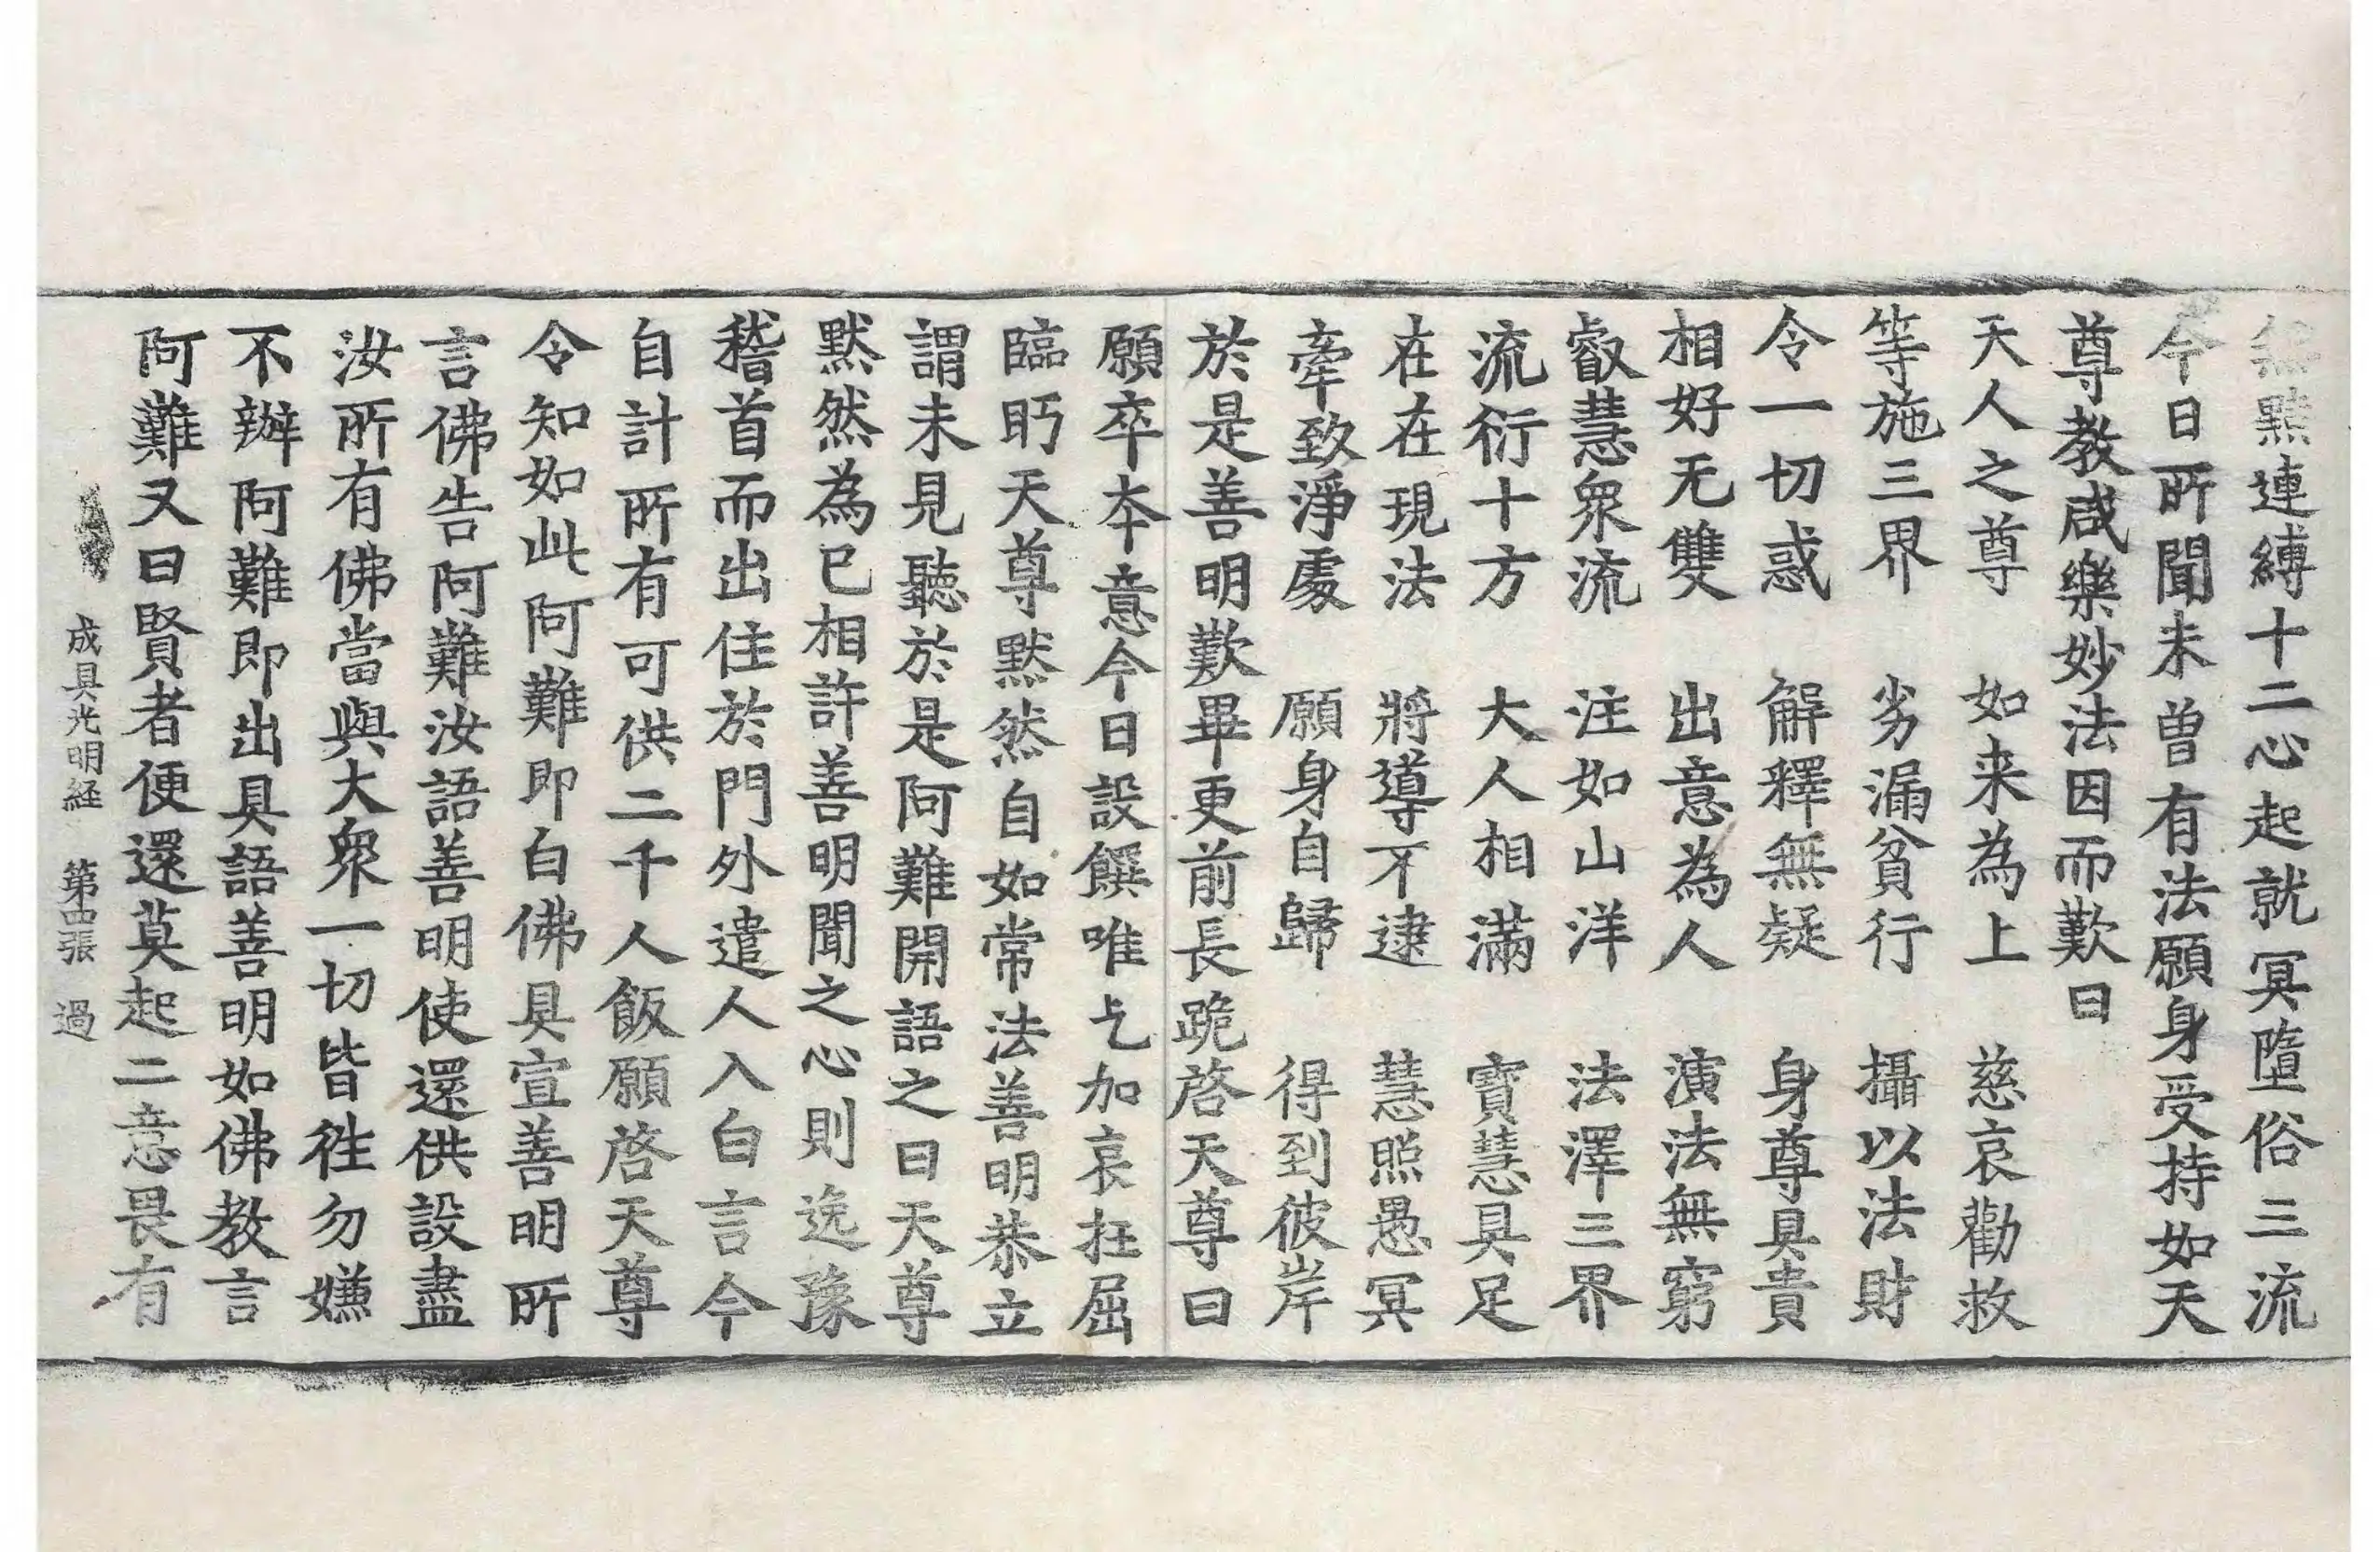 黮連縛十二心起就冥墮俗三流
今日所聞未曽有法願身受持如天
尊教咸樂妙法因而歎曰
天人之尊　如来為上　慈哀勸救
等施三界　劣漏貧行　攝以法財
令一切惑　解釋無疑　身尊具貴
相好无雙　出意為人　演法無窮
叡慧衆流　注如山洋　法澤三界
流衍十方　大人相滿　寳慧具足
在在現法　將導不逮　慧照愚冥
牽致淨處　願身自歸　得到彼岸
於是善明歎畢更前長跪啓天尊曰
願卒夲意今日設饌唯乞加哀抂屈
臨眄天尊黙然自如常法善明恭立
謂未見聽於是阿難開語之曰天尊
黙然為已相許善明聞之心則逸豫
稽首而出住於門外遣人入白言今
自計所有可供二千人飯願啓天尊
令知如此阿難即白佛具宣善明所
言佛告阿難汝語善明使還供設盡
汝所有佛當與大衆一切皆徃勿嫌
不辦阿難即出具語善明如佛教言
阿難又曰賢者便還莫起二意畏有
成具光明経　第四張　過